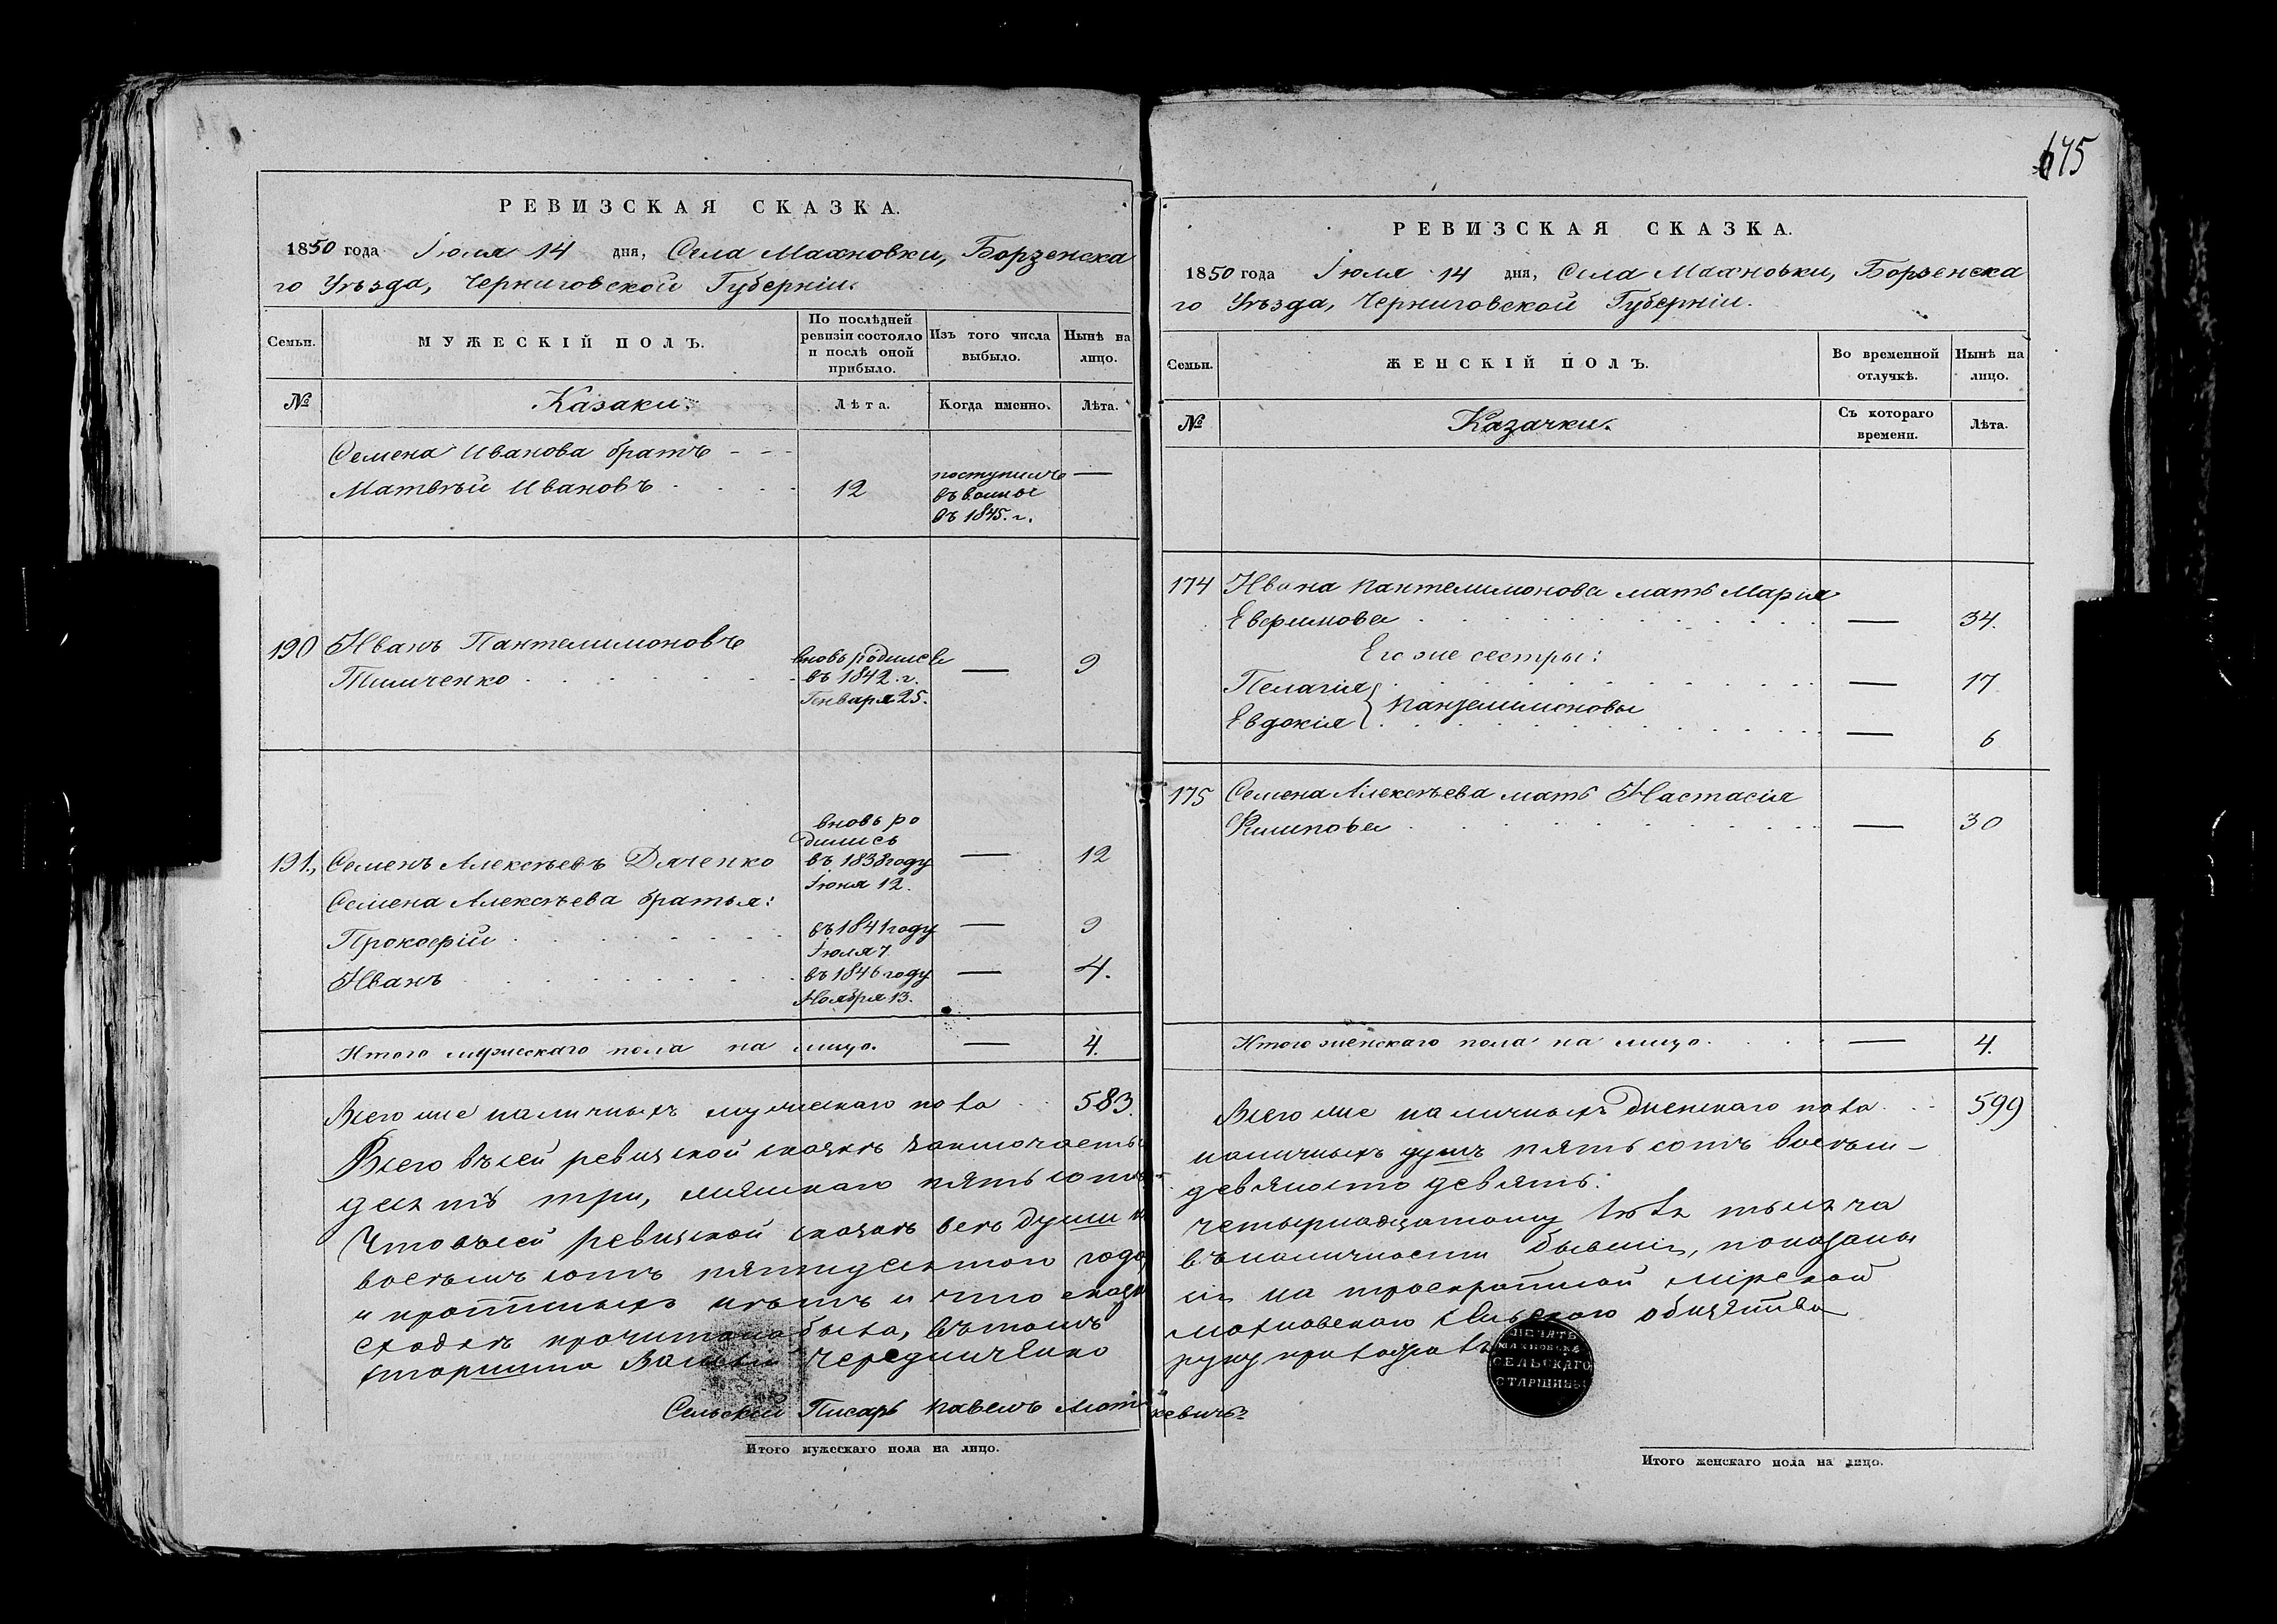 РЕВИЗСКАЯ СКАЗКА.
1850 года Іюля 14 дня, Села Махновки, Борзенска
го Уѣзда, Черниговской Губерніи.
Семьи.
МУЖЕСКІЙ ПОЛЪ.
По послѣдней
ревизіи состояло
и послѣ оной
прибыло.
Изъ того числа
выбыло.
Нынѣ на
лицо.
№
Казаки.
Лѣта.
Когда именно.
Лѣта.
Семена Иванова братъ
Матвѣй Ивановъ 12 —
поступилъ
въ
въ 1845. г.
190 Иванъ Пантелимоновъ
Тимченко — 9
вновь родился
въ 1842. г.
Генваря 25.
вновь ро
дились
191. Семенъ Алексѣевъ Дяченко въ 1838 году — 12
Іюня 12.
Семена Алексѣева братья:
Прокофій въ 1841 году — 9
Іюля 7
Иванъ въ 1846 году — 4.
Ноября 13.
Итого мужескаго пола на лицо. — 4.
Всего же наличныхъ мужескаго пола 583.
Всего въ сей ревизской сказкѣ заключается
десятъ три, женскаго пять сотъ
Что въ сей ревизской сказкѣ всѣ души
восемь сотъ пятидесятого года
и прописныхъ нѣтъ и что
сходкѣ прочитана была, въ томъ
старшина Чередниченко
Сельскій Писарь Павелъ
Итого мужескаго пола на лицо.
675
РЕВИЗСКАЯ СКАЗКА.
1850 года Іюля 14 дня, Села Махновки, Борзенска
го Уѣзда, Черниговской Губерніи.
Семьи.
ЖЕНСКІЙ ПОЛЪ.
Во временной
отлучкѣ.
Нынѣ на
лицо.
№
Казачки.
Съ котораго
времени.
Лѣта.
174 Ивана Пантелимонова мать Марія
Евфимова — 34.
Его же сестры:
Пелагія — 17
Пантелимоновы
Евдокія — 6
175 Семена Алексѣева мать Настасія
Филипова — 30
Итого женскаго пола на лицо. — 4.
Всего же наличныхъ женскаго пола 599
наличныхъ душъ пять сотъ восемь-
девяносто девять.
четырнадцатому тысяча
въ наличности бывшія, показаны
на троекратной мірской
махновскаго сельскаго общества
руку приложилъ
ПЕЧАТЬ
МАХНОВСКА
СЕЛЬСКАГО
СТАРШИНЫ
Итого женскаго пола на лицо.